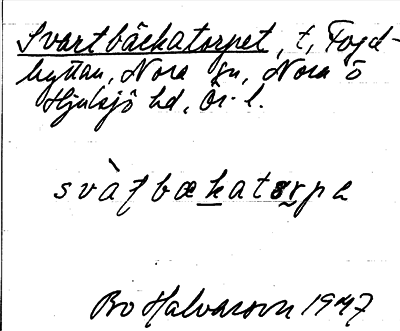 Svartbäckatorpet, t, Fogd-
hyttan, Nora sn, Nora o
Hjulsjö hd, Ör. l.
svàtbækatørpe
Bo Halvarson 1947